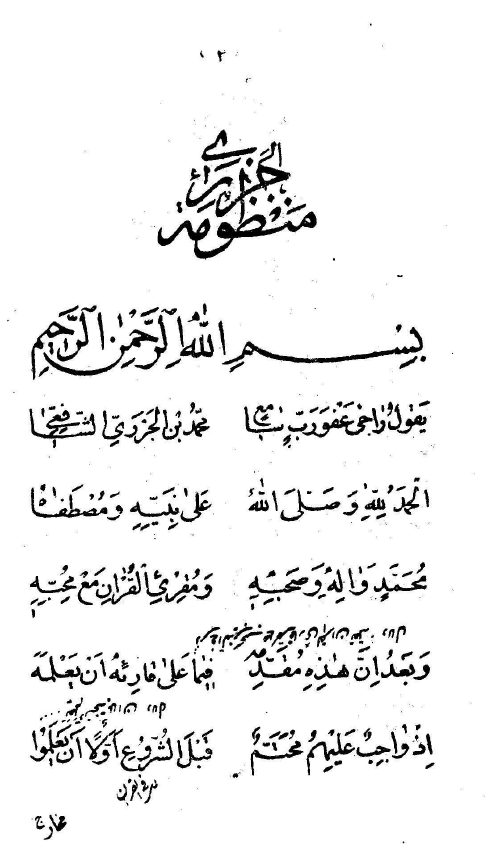 ٢
منظومة الجزري
بِسْمِ اللّٰهِ الرَّحْمٰنِ الرَّحِيمِ
يَقُولُ رَاجِي عَفْوِ رَبٍّ سَامِعِ مُحَمَّدُ بْنُ الْجَزَرِيِّ الشَّافِعِي
اَلْحَمْدُ لِلّٰهِ وَصَلَّى اللّٰهُ عَلٰى نَبِيِّهِ وَمُصْطَفَاهُ
مُحَمَّدٍ وَاٰلِهِ وَصَحْبِهِ وَمُقْرِئِ الْقُرْاٰنِ مَعْ مُحِبِّهِ
وَبَعْدُ اِنَّ هٰذِهِ مُقَدِّمَه فِيمَا عَلٰى قَارِئِهِ اَنْ يَعْلَمَه
اِذْ وَاجِبٌ عَلَيْهِمُ مُحَتَّمُ قَبْلَ الشُّرُوعِ اَوَّلًا اَنْ يَعْلَمُوا
مخارج